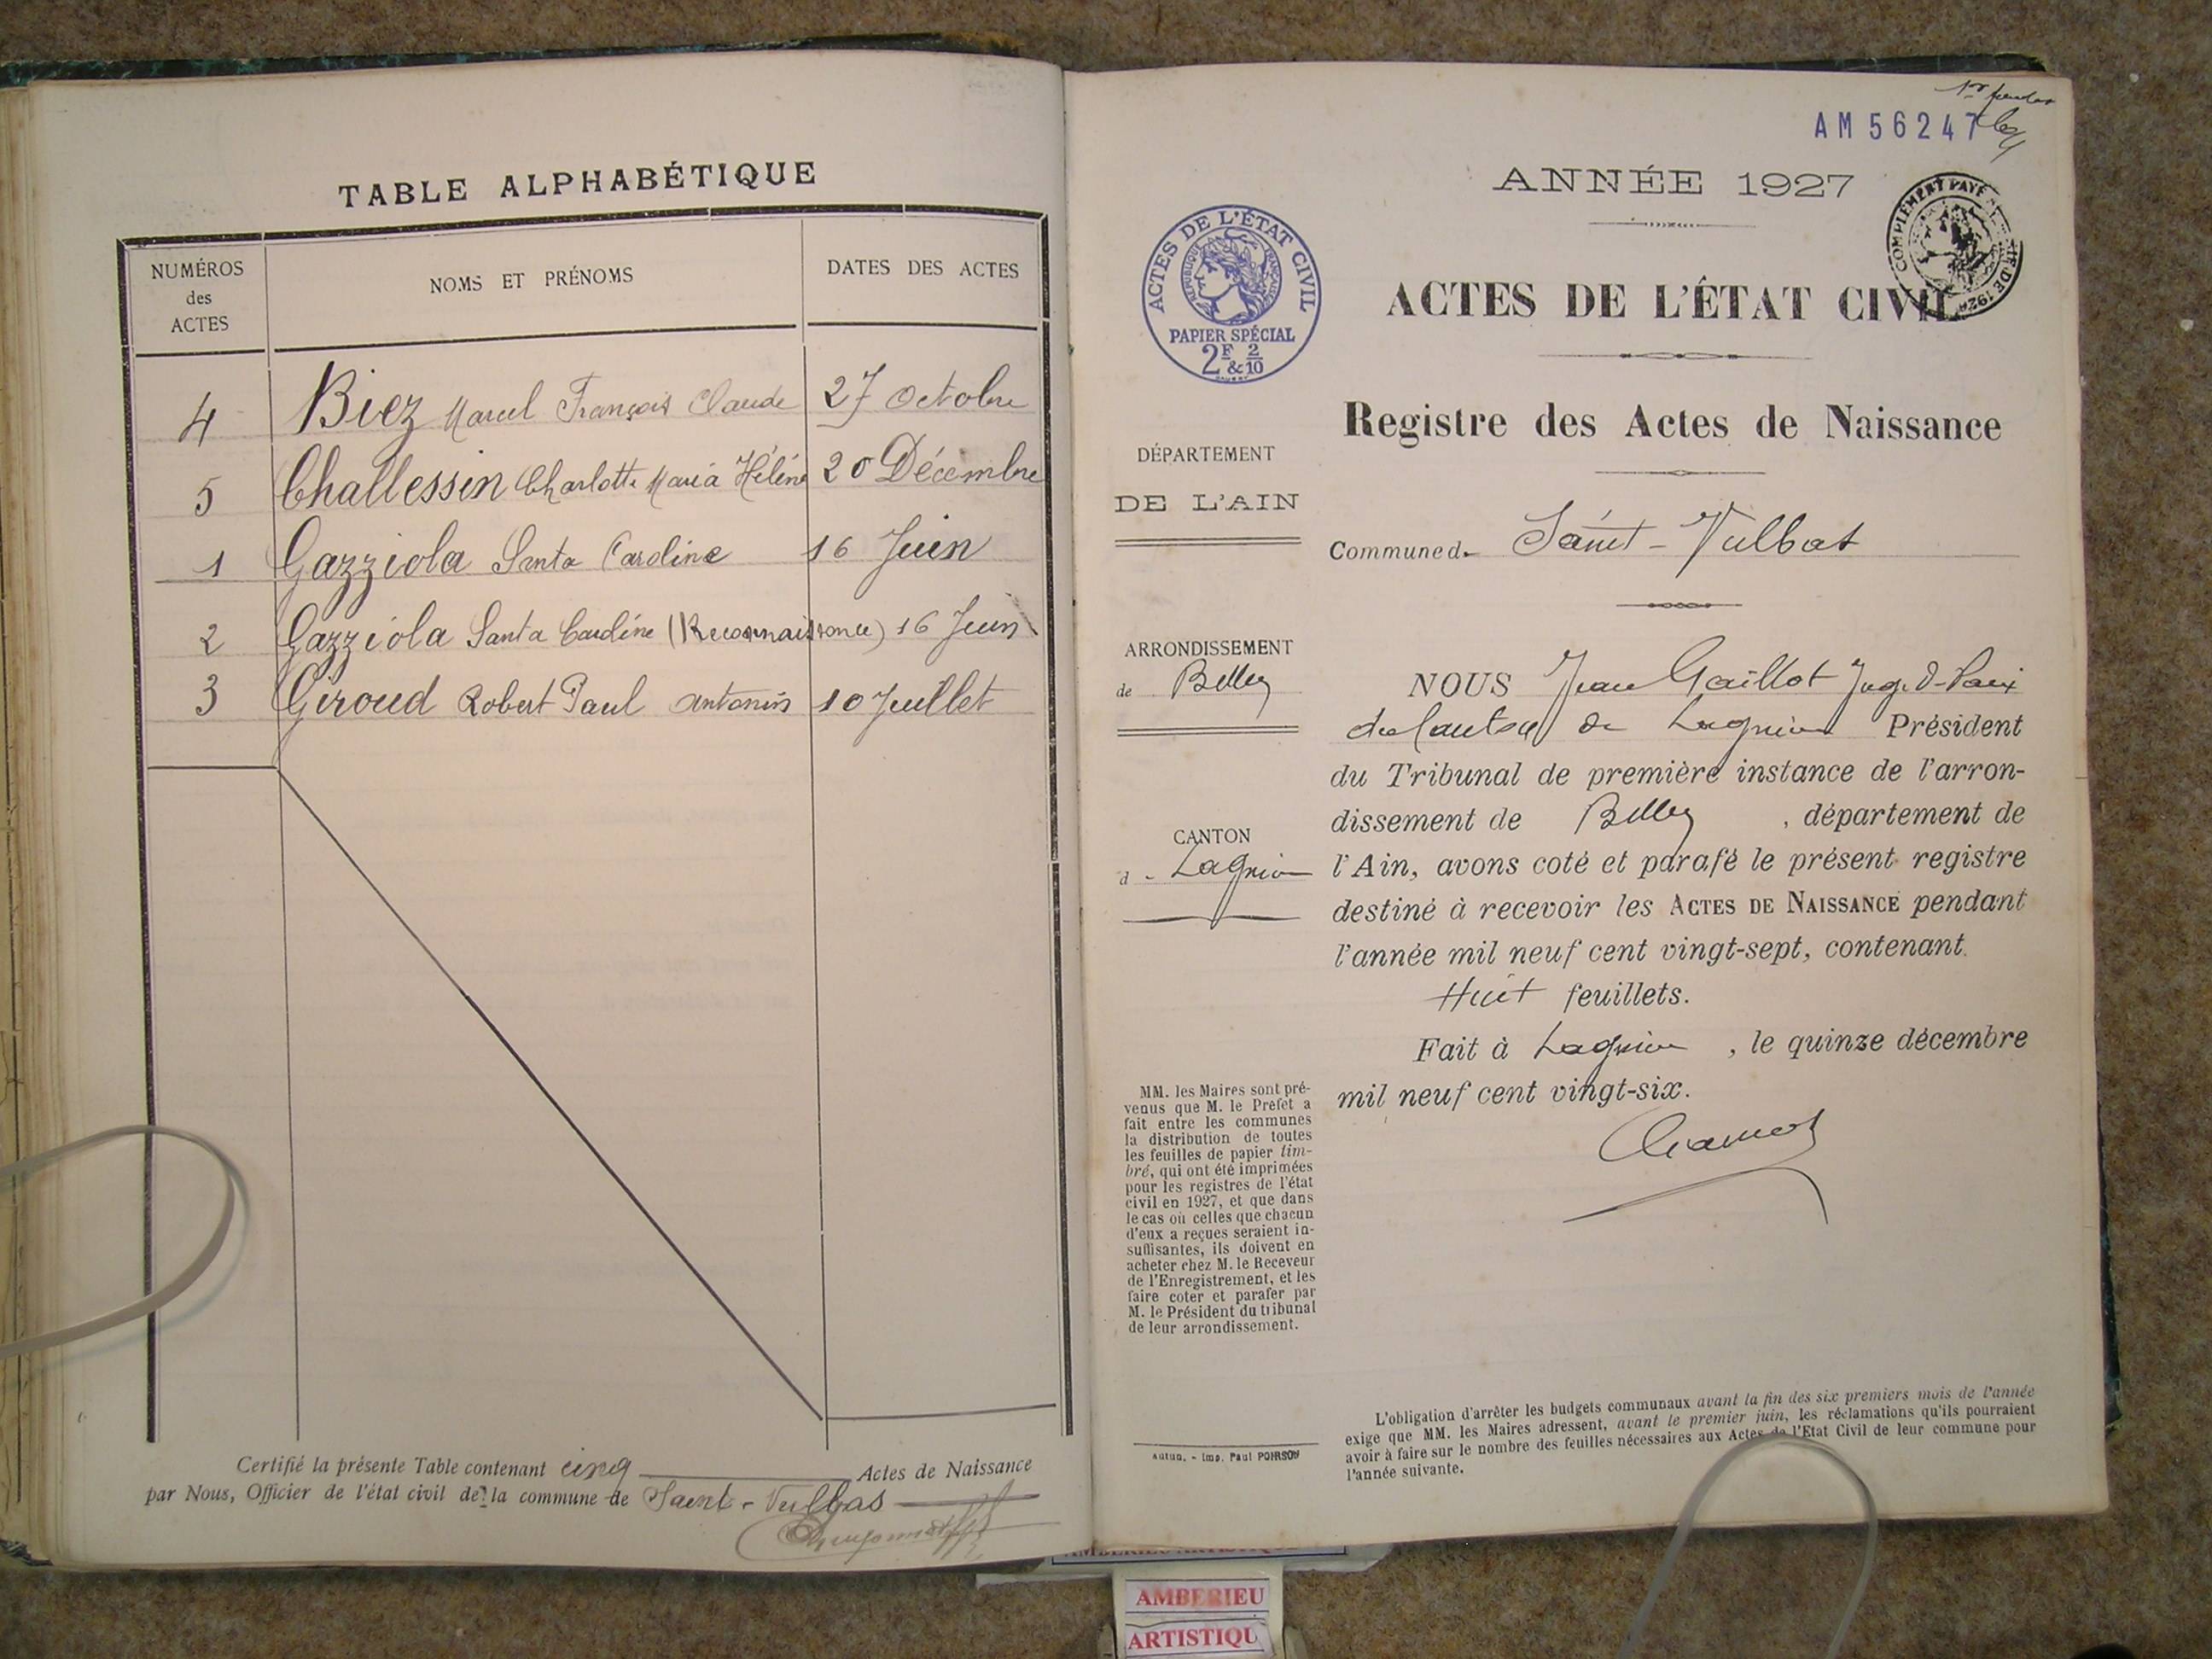 TABLE ALPHABÉTIQUE
NUMÉROS des ACTES NOMS ET PRÉNOMS DATES DES ACTES
4 Biez Marcel François Claude 27 Octobre
5 Challessin Charlotte Maria Hélène 20 Décembre
1 Gazziola Santa Caroline 16 Juin
2 Gazziola Santa Caroline (Reconnaissance) 16 Juin
3 Giroud Robert Paul Antonin 10 Juillet
Certifié la présente Table contenant cinq Actes de Naissance
par Nous, Officier de l'état civil de la commune de Saint-Vulbas
AM 56247
ANNÉE 1927
ACTES DE L'ÉTAT CIVIL
RÉPUBLIQUE FRANÇAISE
PAPIER SPÉCIAL
2F & 2/10
COMPLÉMENT PAYÉ DE 1924
ACTES DE L'ÉTAT CIVIL
Registre des Actes de Naissance
DÉPARTEMENT
DE L'AIN
Commune d. Saint-Vulbas
ARRONDISSEMENT
de Belley
CANTON
d. Lagnieu
NOUS Jean Gaillot Juge d. Paix
du Canton de Lagnieu Président
du Tribunal de première instance de l'arron-
dissement de Belley, département de
l'Ain, avons coté et parafé le présent registre
destiné à recevoir les ACTES DE NAISSANCE pendant
l'année mil neuf cent vingt-sept, contenant
Huit feuillets.
Fait à Lagnieu, le quinze décembre
mil neuf cent vingt-six.
MM. les Maires sont pré-
venus que M. le Préfet a
fait entre les communes
la distribution de toutes
les feuilles de papier tim-
bré, qui ont été imprimées
pour les registres de l'état
civil en 1927, et que dans
le cas où celles que chacun
d'eux a reçues seraient in-
suffisantes, ils doivent en
acheter chez M. le Receveur
de l'Enregistrement, et les
faire coter et parafer par
M. le Président du tribunal
de leur arrondissement.
Autun. - Imp. Paul POIRSON
L'obligation d'arrêter les budgets communaux avant la fin des six premiers mois de l'année
exige que MM. les Maires adressent, avant le premier juin, les réclamations qu'ils pourraient
avoir à faire sur le nombre des feuilles nécessaires aux Actes de l'Etat Civil de leur commune pour
l'année suivante.
AMBERIEU
ARTISTIQU